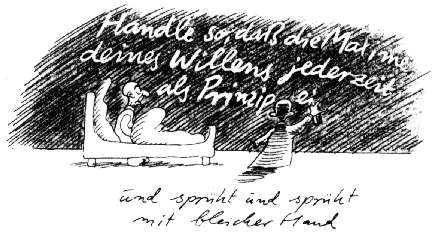 Handle so, daß die Maxime
deines Willens jederzeit
als Prinzip ei
und sprüht und sprüht
mit bleicher Hand